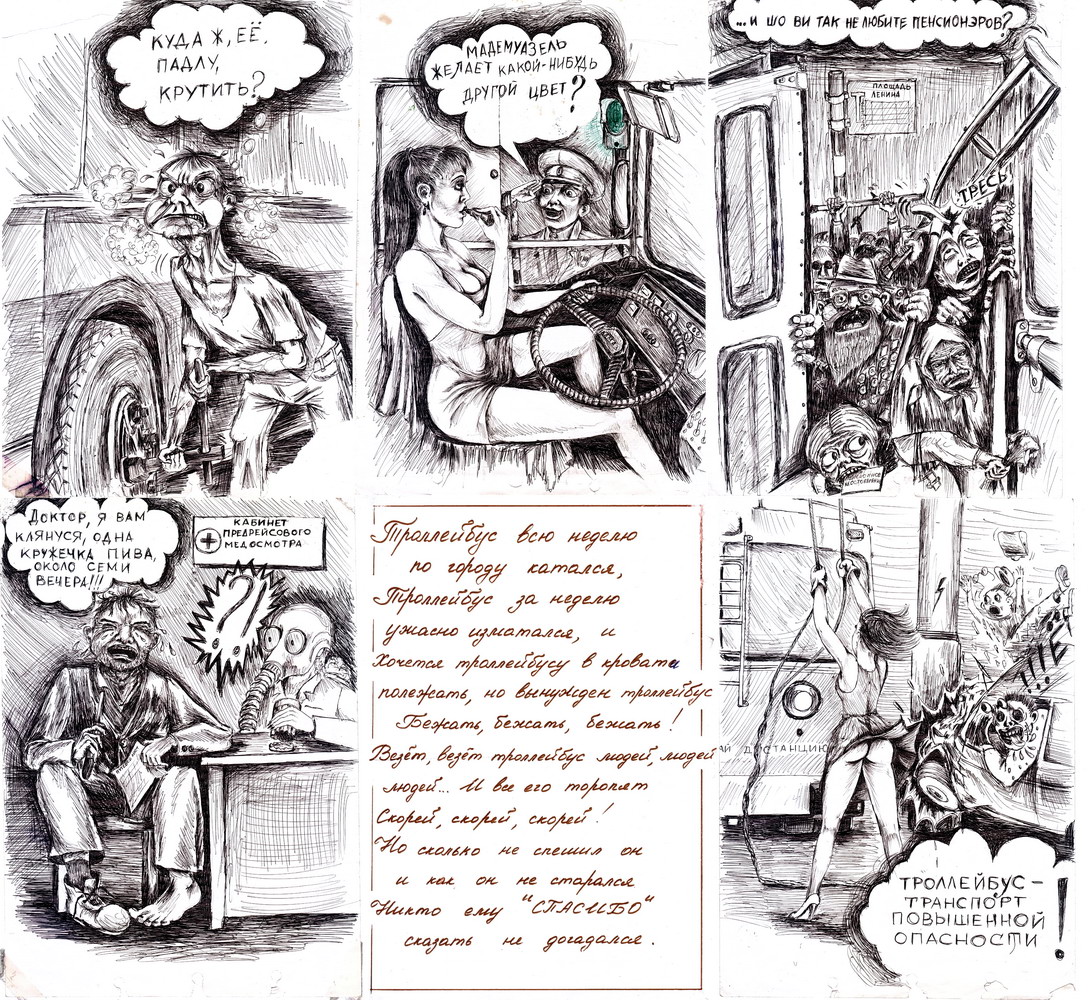 КУДА Ж, ЕЁ,
ПАДЛУ,
КРУТИТЬ?
МАДЕМУАЗЕЛЬ
ЖЕЛАЕТ КАКОЙ-НИБУДЬ
ДРУГОЙ ЦВЕТ?
...И ШО ВИ ТАК НЕ ЛЮБИТЕ ПЕНСИОНЭРОВ?
ПЛОЩАДЬ
ЛЕНИНА
ТРЕСЬ!
ДОКТОР, Я ВАМ
КЛЯНУСЯ, ОДНА
КРУЖЕЧКА ПИВА,
ОКОЛО СЕМИ
ВЕЧЕРА!!!
КАБИНЕТ
ПРЕДРЕЙСОВОГО
МЕДОСМОТРА
?!
Троллейбус всю неделю
по городу катался,
Троллейбус за неделю
ужасно измотался, и
Хочется троллейбусу в кровати
полежать, но вынужден троллейбус
Бежать, бежать, бежать!
Везёт, везёт троллейбус людей, людей
людей... И все его торопят
Скорей, скорей, скорей!
Но сколько не спешил он
и как он не старался
Никто ему "СПАСИБО"
сказать не догадался.
АЙ ДИСТАНЦИЮ
ТРОЛЛЕЙБУС -
ТРАНСПОРТ
ПОВЫШЕННОЙ
ОПАСНОСТИ!